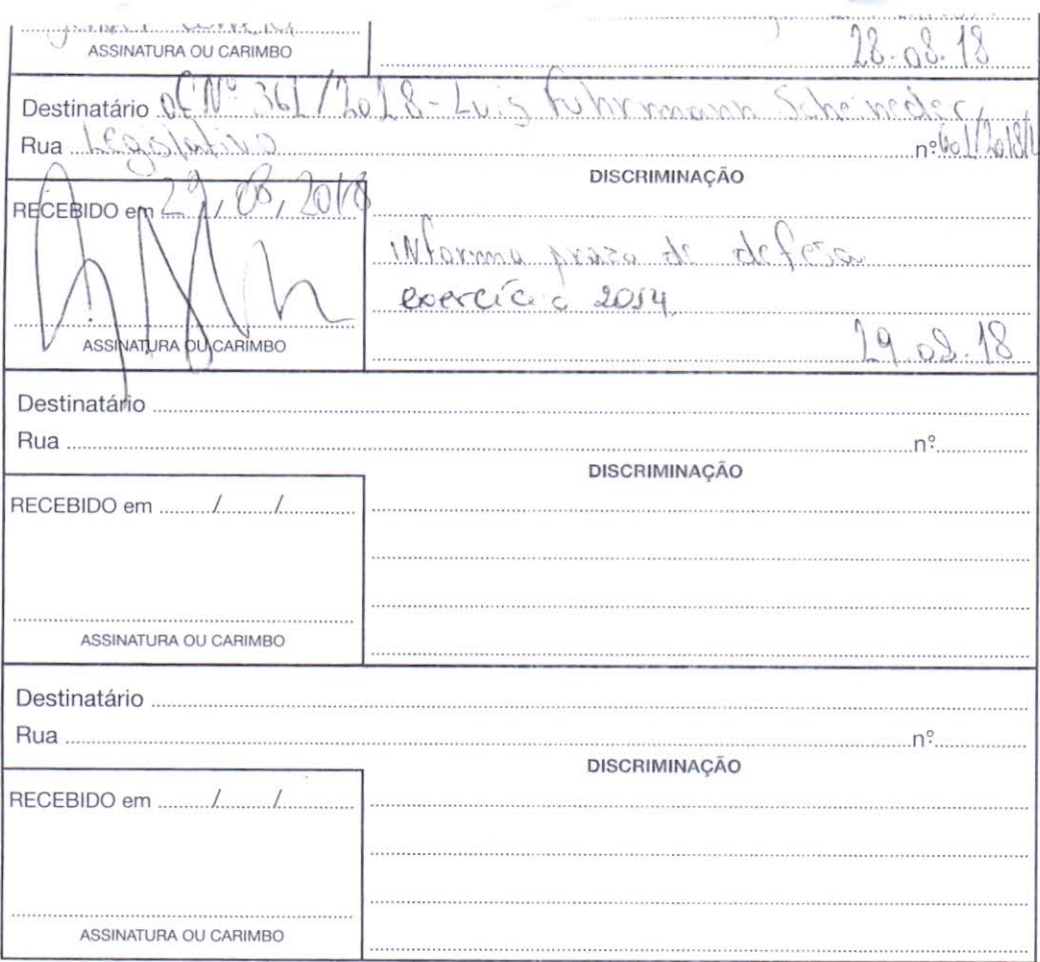 ASSINATURA OU CARIMBO
28.08.18
Destinatário Of Nº 361/2018 - Luis Fuhrmann Scheineder
Rua Legislativo nº 601/2018/
DISCRIMINAÇÃO
RECEBIDO em 29/08/2018
informa prazo de defesa
exercício 2014
ASSINATURA OU CARIMBO
29.08.18
Destinatário
Rua nº
DISCRIMINAÇÃO
RECEBIDO em / /
ASSINATURA OU CARIMBO
Destinatário
Rua nº
DISCRIMINAÇÃO
RECEBIDO em / /
ASSINATURA OU CARIMBO